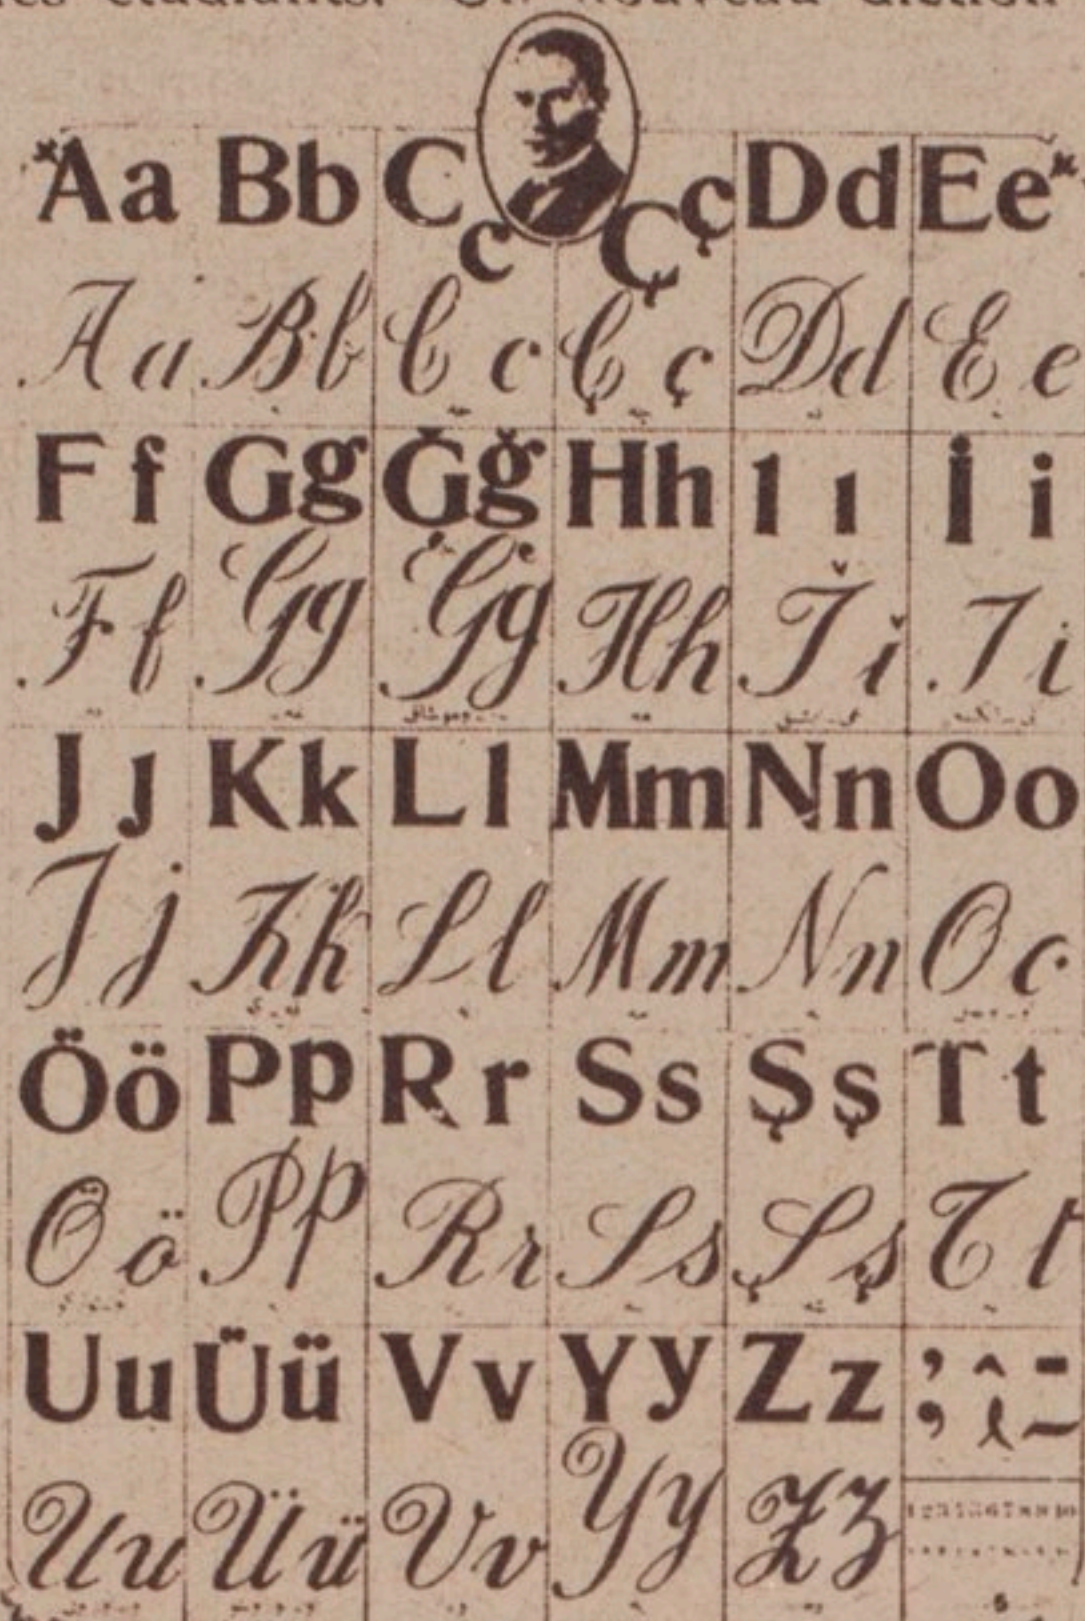 Un nouveau diction
Aa Bb Cc Çç Dd Ee
Aa Bb Cc Çç Dd Ee
Ff Gg Ğğ Hh Iı İi
Ff Gg Ğğ Hh Ǐǐ Ii
Jȷ Kk Ll Mm Nn Oo
Jj Kk Ll Mm Nn Oo
Öö Pp Rr Ss Şş Tt
Öö Pp Rr Ss Şş Tt
Uu Üü Vv Yy Zz
Uu Üü Vv Yy Zz